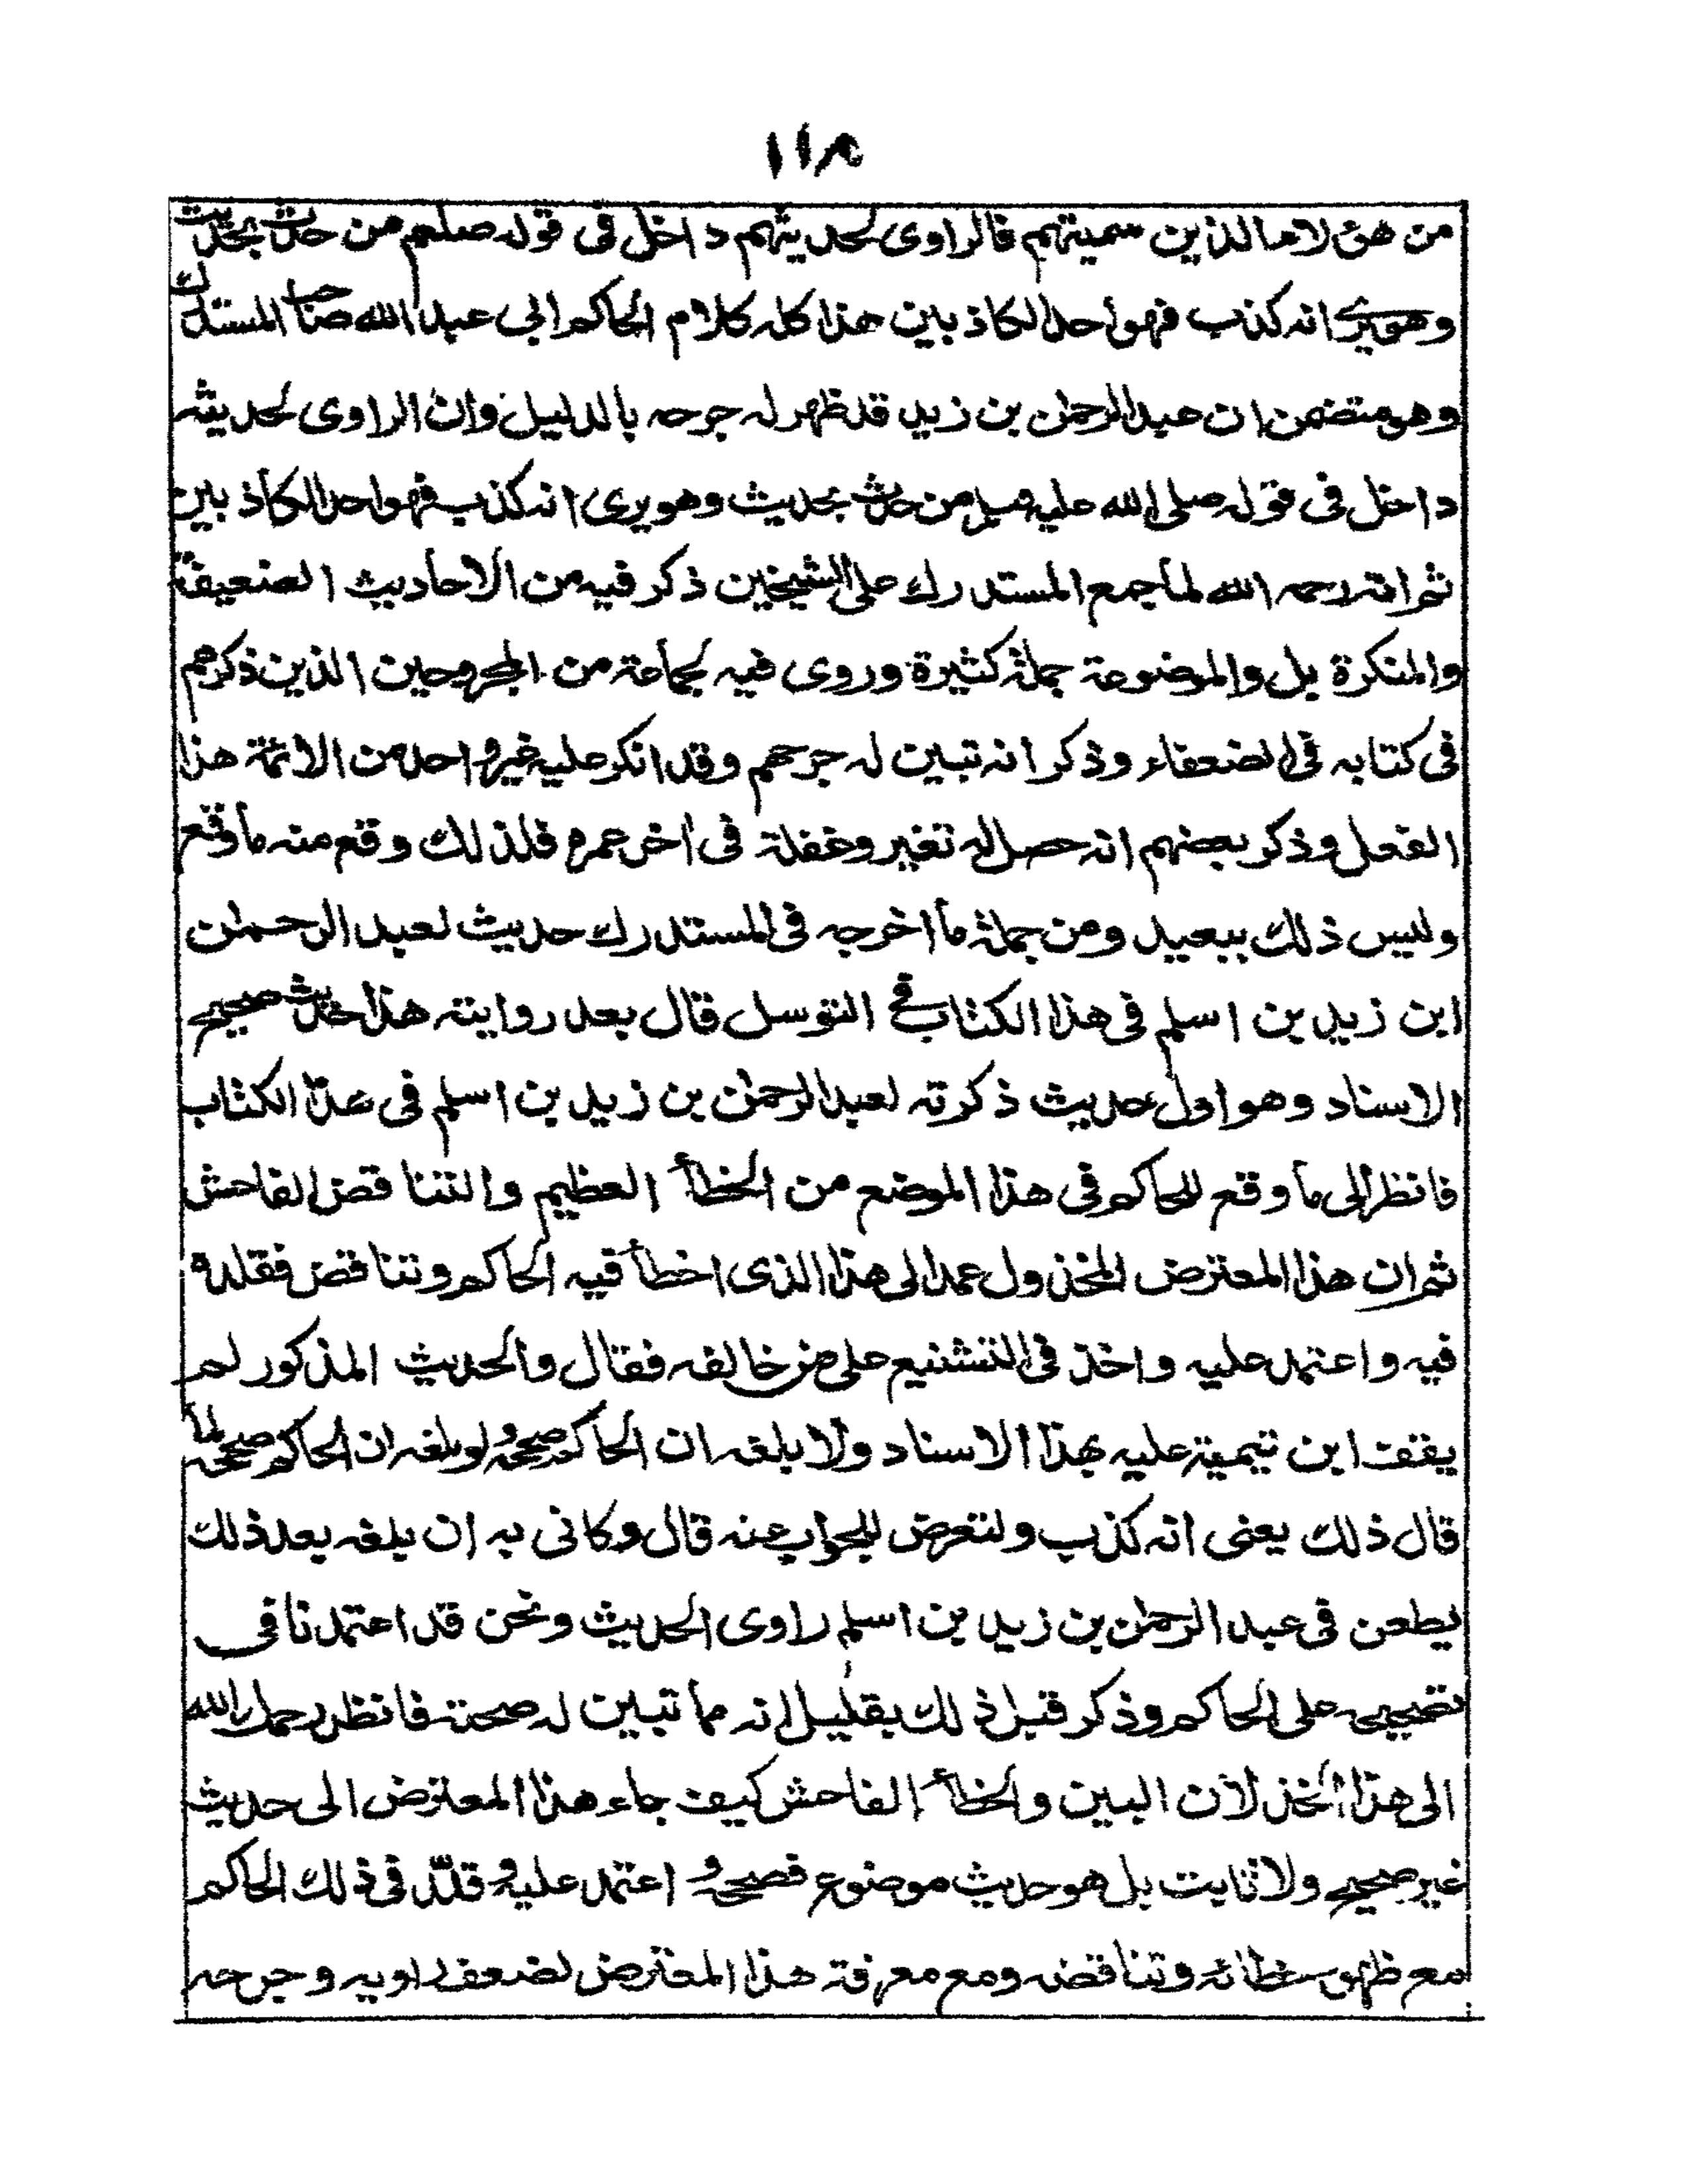 ١١٨
من هؤلاء الذين سميتهم فالراوى لحديثهم داخل فى قوله صلعم من حدث بحديث
وهو يرى انه كذب فهو احد الكاذبين هذا كله كلام الحاكم ابى عبد الله صاحب المستدرك
وهو متضمن ان عبد الرحمٰن بن زيد قد ظهر له جرحه بالدليل وان الراوى لحديثه
داخل فى قوله صلى الله عليه وسلم من حدث بحديث وهو يرى انه كذب فهو احد الكاذبين
ثم انه رحمه الله لما جمع المستدرك على الشيخين ذكر فيه من الاحاديث الضعيفة
والمنكرة بل والموضوعة جملة كثيرة وروى فيه لجماعة من المجروحين الذين ذكرهم
فى كتابه فى الضعفاء وذكر انه تبين له جرحهم وقد انكر عليه غير واحد من الائمة هذا
الفعل وذكر بعضهم انه حصل له تغير وغفلة فى اخر عمره فلذلك وقع منه ما وقع
وليس ذلك ببعيد ومن جملة ما اخرجه فى المستدرك حديث لعبد الرحمٰن
ابن زيد بن اسلم فى هذا الكتاب فى التوسل قال بعد روايته هذا حديث صحيح
الاسناد وهو اول حديث ذكرته لعبد الرحمٰن بن زيد بن اسلم فى هذا الكتاب
فانظر الى ما وقع للحاكم فى هذا الموضع من الخطأ العظيم والتناقض الفاحش
ثم ان هذا المعترض المخذول عمد الى هذا الذى اخطأ فيه الحاكم وتناقض فقلده
فيه واعتمد عليه واخذ فى التشنيع على من خالفه فقال والحديث المذكور لم
يقف ابن تيمية عليه بهذا الاسناد ولا بلغه ان الحاكم صححه ولو بلغه ان الحاكم صححه لما
قال ذلك يعنى انه كذب ولتعرض للجواب عنه قال وكانى به ان بلغه بعد ذلك
يطعن فى عبد الرحمٰن بن زيد بن اسلم راوى الحديث ونحن قد اعتمدنا فى
تصحيحه على الحاكم وذكر قبل ذلك بقليل انه مما تبين له صحته فانظر رحمك الله
الى هذا الخذلان البين والخطأ الفاحش كيف جاء هذا المعترض الى حديث
غير صحيح ولا ثابت بل هو حديث موضوع فصححه واعتمد عليه وقلد فى ذلك الحاكم
مع ظهور خطائه وتناقضه ومع معرفة هذا المعترض لضعف راويه وجرحه